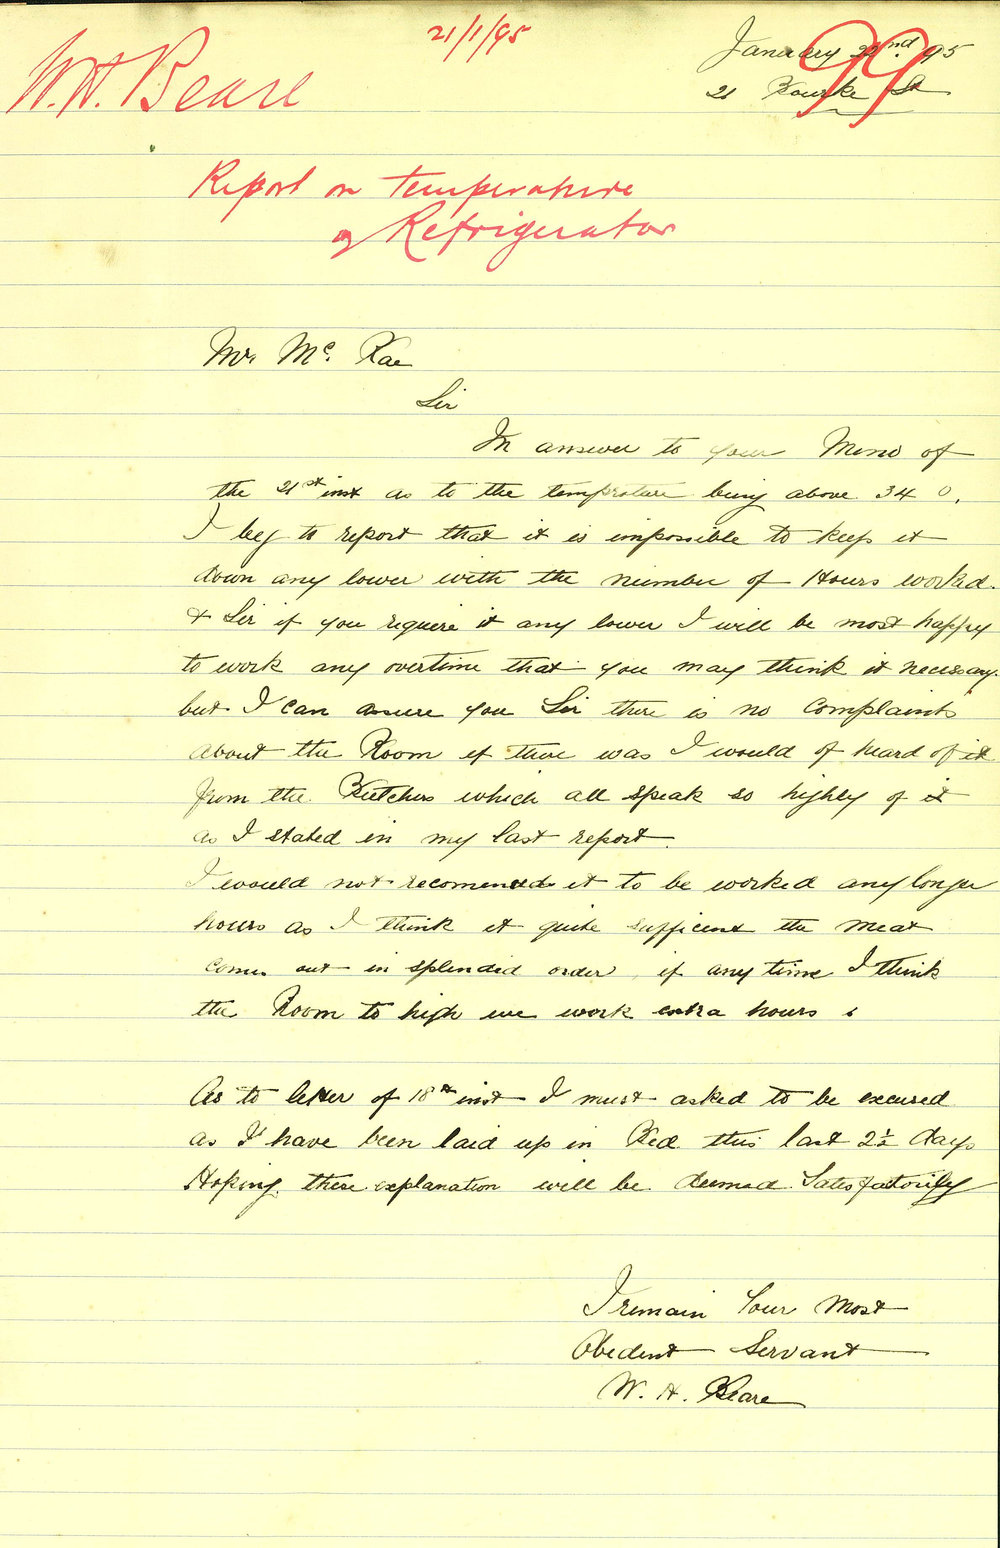 W.H. Beare
21/1/95
99
January 22nd 95
21 Bourke St
Report on temperature
of Refrigerator
Mr. Mc. Rae
Sir
In answer to your Memo of
the 21st inst as to the temprature being above 34 0.
I beg to report that it is impossible to keep it
down any lower with the number of Hours worked.
& Sir if you requere it any lower I will be most happy
to work any overtime that you may think it necessay.
but I can assure you Sir there is no Complaints
about the Room if there was I would of heard of it
from the Butchers which all speak so highly of it
as I stated in my last report.
I would not recomended it to be worked any longer
hours as I think it quite sufficent the meat
comes out in splendid order, if any time I think
the Room to high we work extra hours.
As to letter of 18th inst I must asked to be excused
as I have been laid up in Bed this last 2½ days
Hoping these explanation will be deemed Satisfatorily
I remain Your Most
Obedent Servant
W. H. Beare